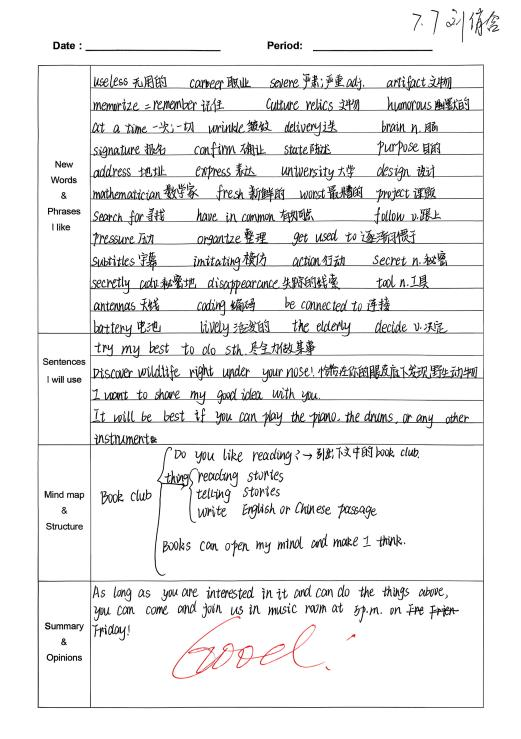 7.7 刘倩含
Date :
Period:
New
Words
&
Phrases
I like
useless 无用的 carreer 职业 severe 严肃;严重 adj. artifact 文物
memorize = remember 记住 Culture relics 文物 humorous 幽默的
at a time 一次;一切 wrinkle 皱纹 delivery 运送 brain n. 脑
signature 签名 confirm 确认 state 陈述 purpose 目的
address 地址 express 表达 university 大学 design 设计
mathematician 数学家 fresh 新鲜的 worst 最糟的 project 课题
search for 寻找 have in common 有共同点 follow v.跟上
pressure 压力 organize 整理 get used to 逐渐习惯于
subtitles 字幕 imitating 模仿 action 行动 secret n.秘密
secretly adv.秘密地 disappearance 失踪的线索 tool n.工具
antennas 天线 coding 编码 be connected to 连接
battery 电池 lively 活泼的 the elderly decide v.决定
Sentences
I will use
try my best to do sth. 尽全力做某事
Discover wildlife right under your nose! 恰恰在你的眼皮底下发现野生动物
I want to share my good idea with you.
It will be best if you can play the piano, the drums, or any other
instruments
Mind map
&
Structure
Book club
Do you like reading? → 引出下文中的book club.
thing
reading stories
telling stories
write English or Chinese passage
Books can open my mind and make I think.
Summary
&
Opinions
As long as you are interested in it and can do the things above,
you can come and join us in music room at 5p.m. on Fre Frien
Friday!
Good!